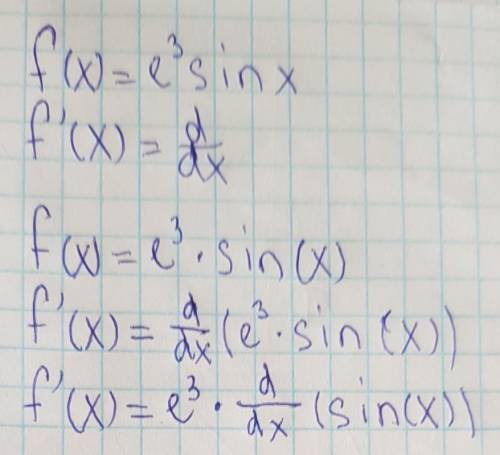 f(x) = e³ sin x
f'(x) = d/dx
f(x) = e³ · sin(x)
f'(x) = d/dx (e³ · sin(x))
f'(x) = e³ · d/dx (sin(x))